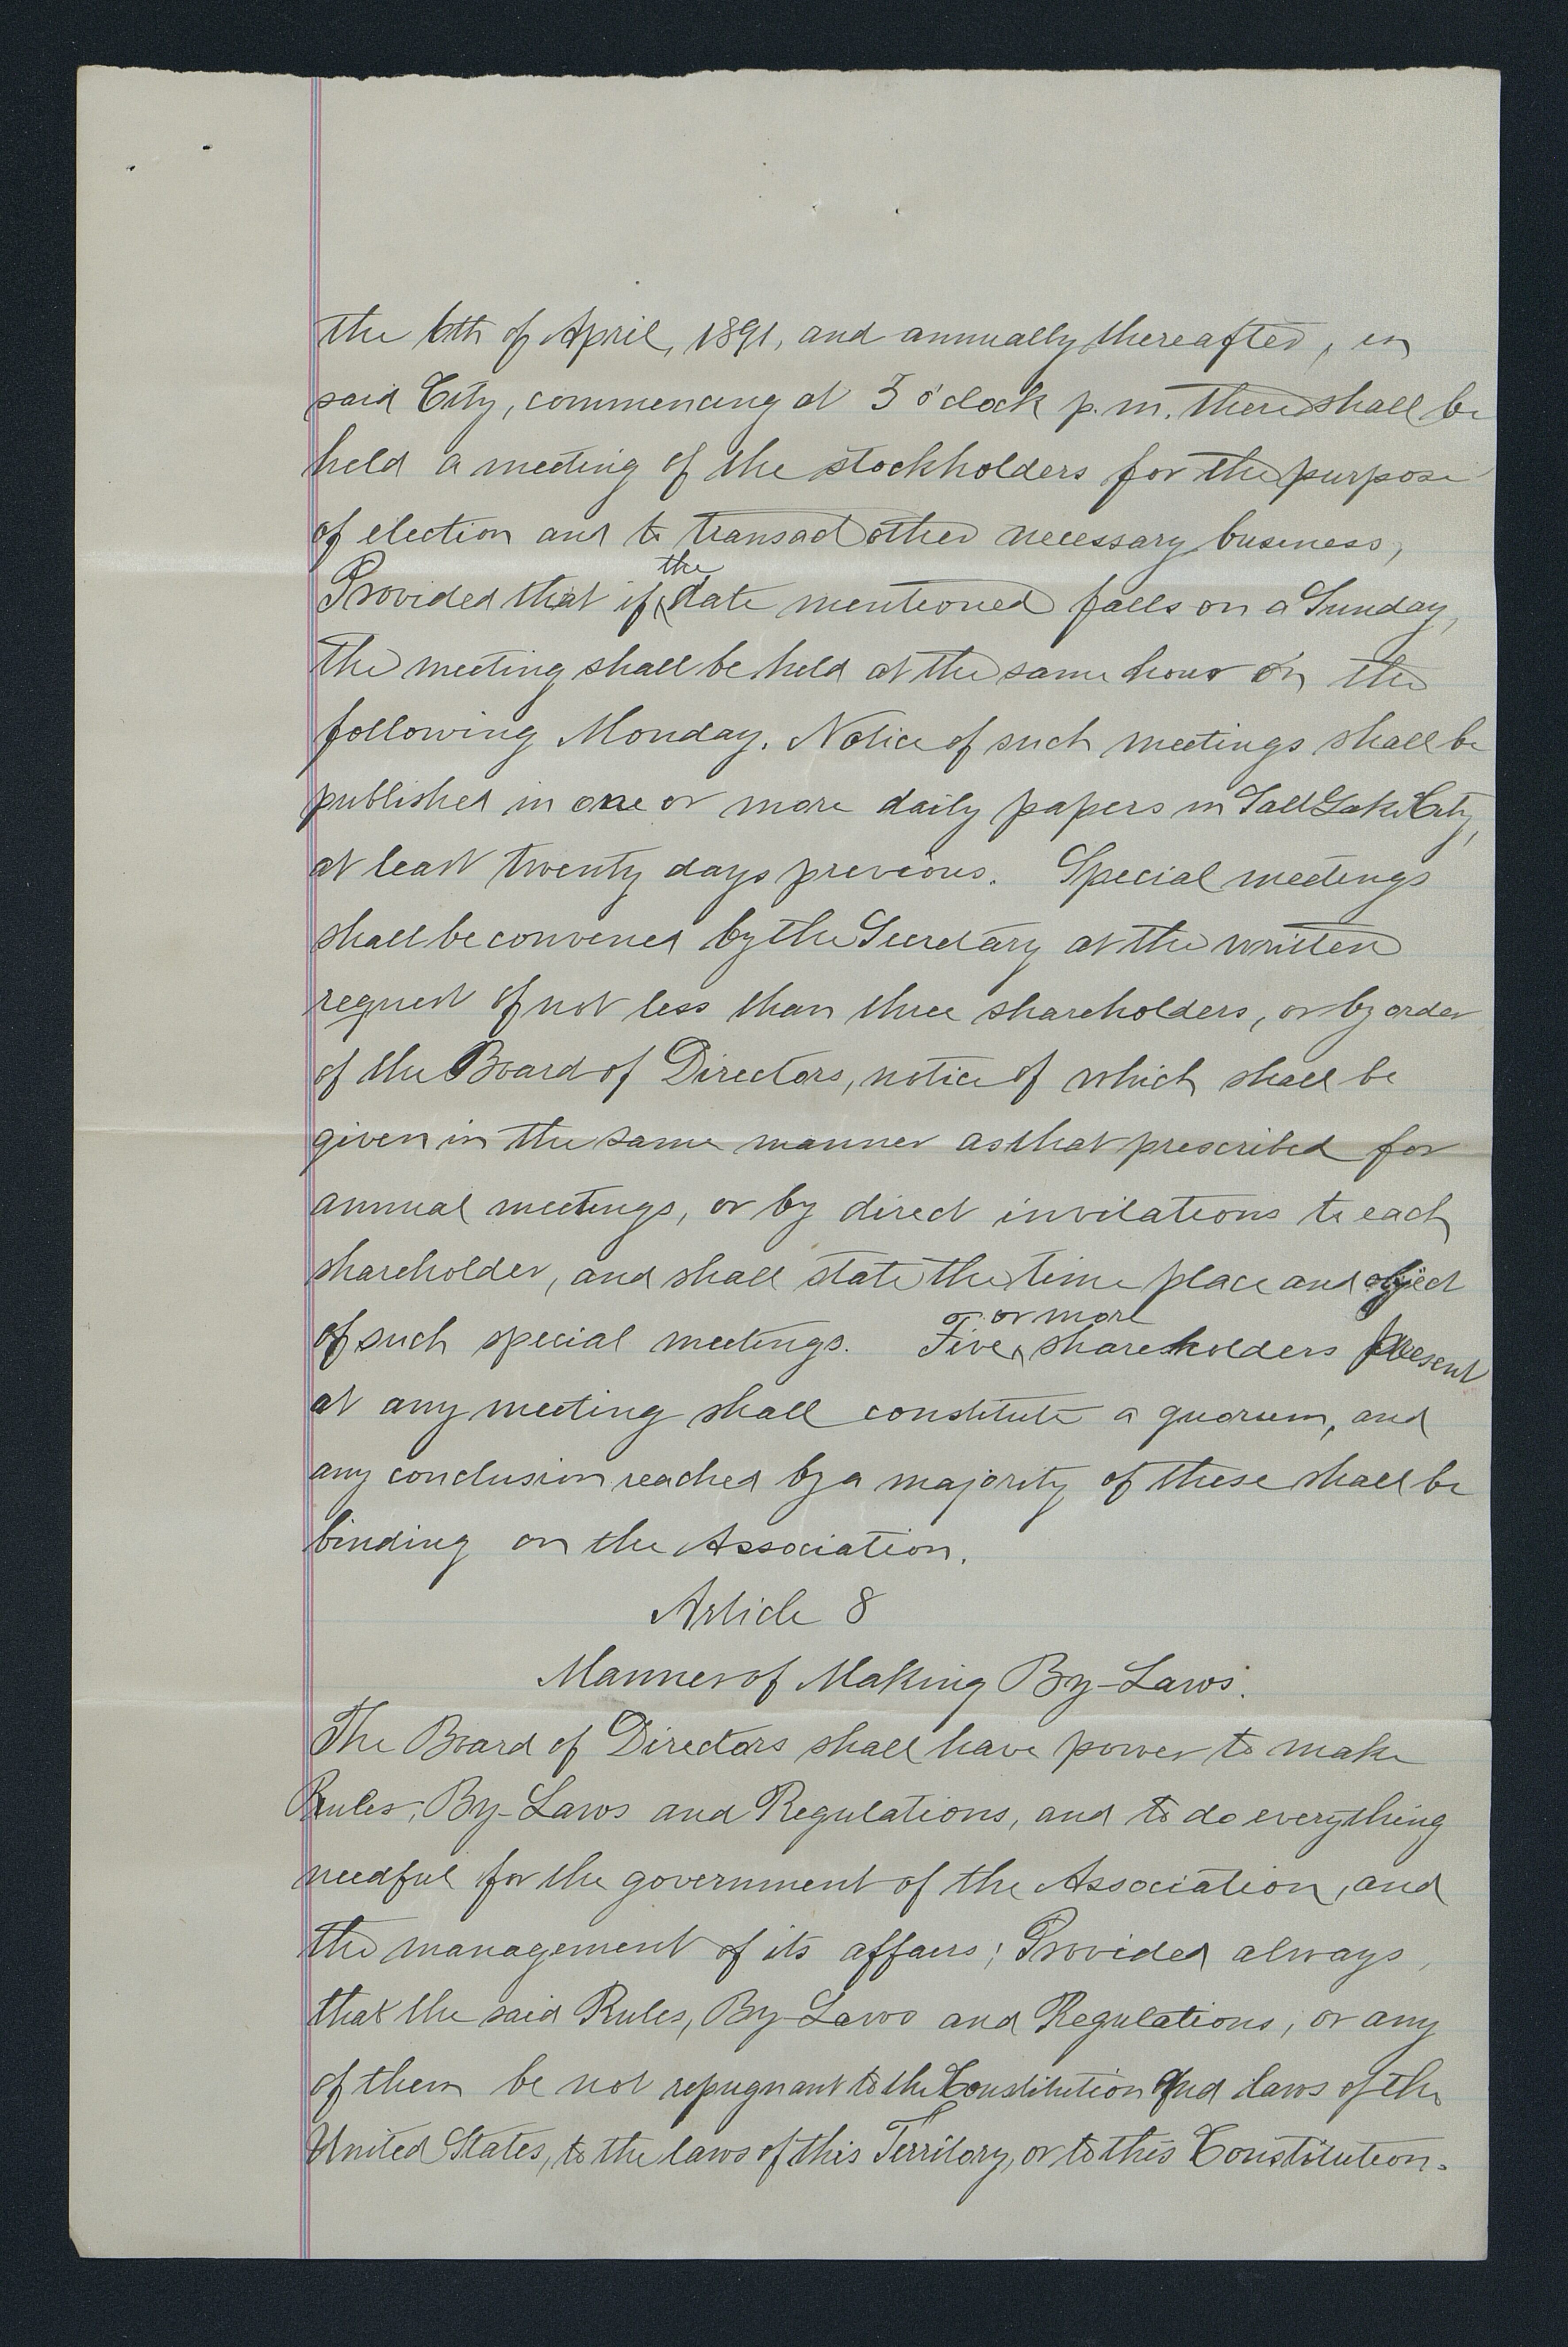 the 6th of April, 1891, and annually thereafter, in
said City, commencing at 3 o'clock p.m. there shall be
held a meeting of the stockholders for the purpose
of election and to transact other necessary business,
Provided that if the date mentioned falls on a Sunday,
the meeting shall be held at the same hour on the
following Monday. Notice of such meetings shall be
published in one or more daily papers in Salt Lake City,
at least twenty days previous. Special meetings
shall be convened by the Secretary at the written
request of not less than three shareholders, or by order
of the Board of Directors, notice of which shall be
given in the same manner as that prescribed for
annual meetings, or by direct invitations to each
shareholder, and shall state the time place and object
of such special meetings. Five or more shareholders present
at any meeting shall constitute a quorum, and
any conclusion reached by a majority of these shall be
binding on the Association.
Article 8
Manner of Making By-Laws.
The Board of Directors shall have power to make
Rules, By-Laws and Regulations, and to do everything
needful for the government of the Association, and
the management of its affairs; Provided always,
that the said Rules, By-Laws and Regulations, or any
of them be not repugnant to the Constitution and laws of the
United States, to the laws of this Territory, or to this Constitution.